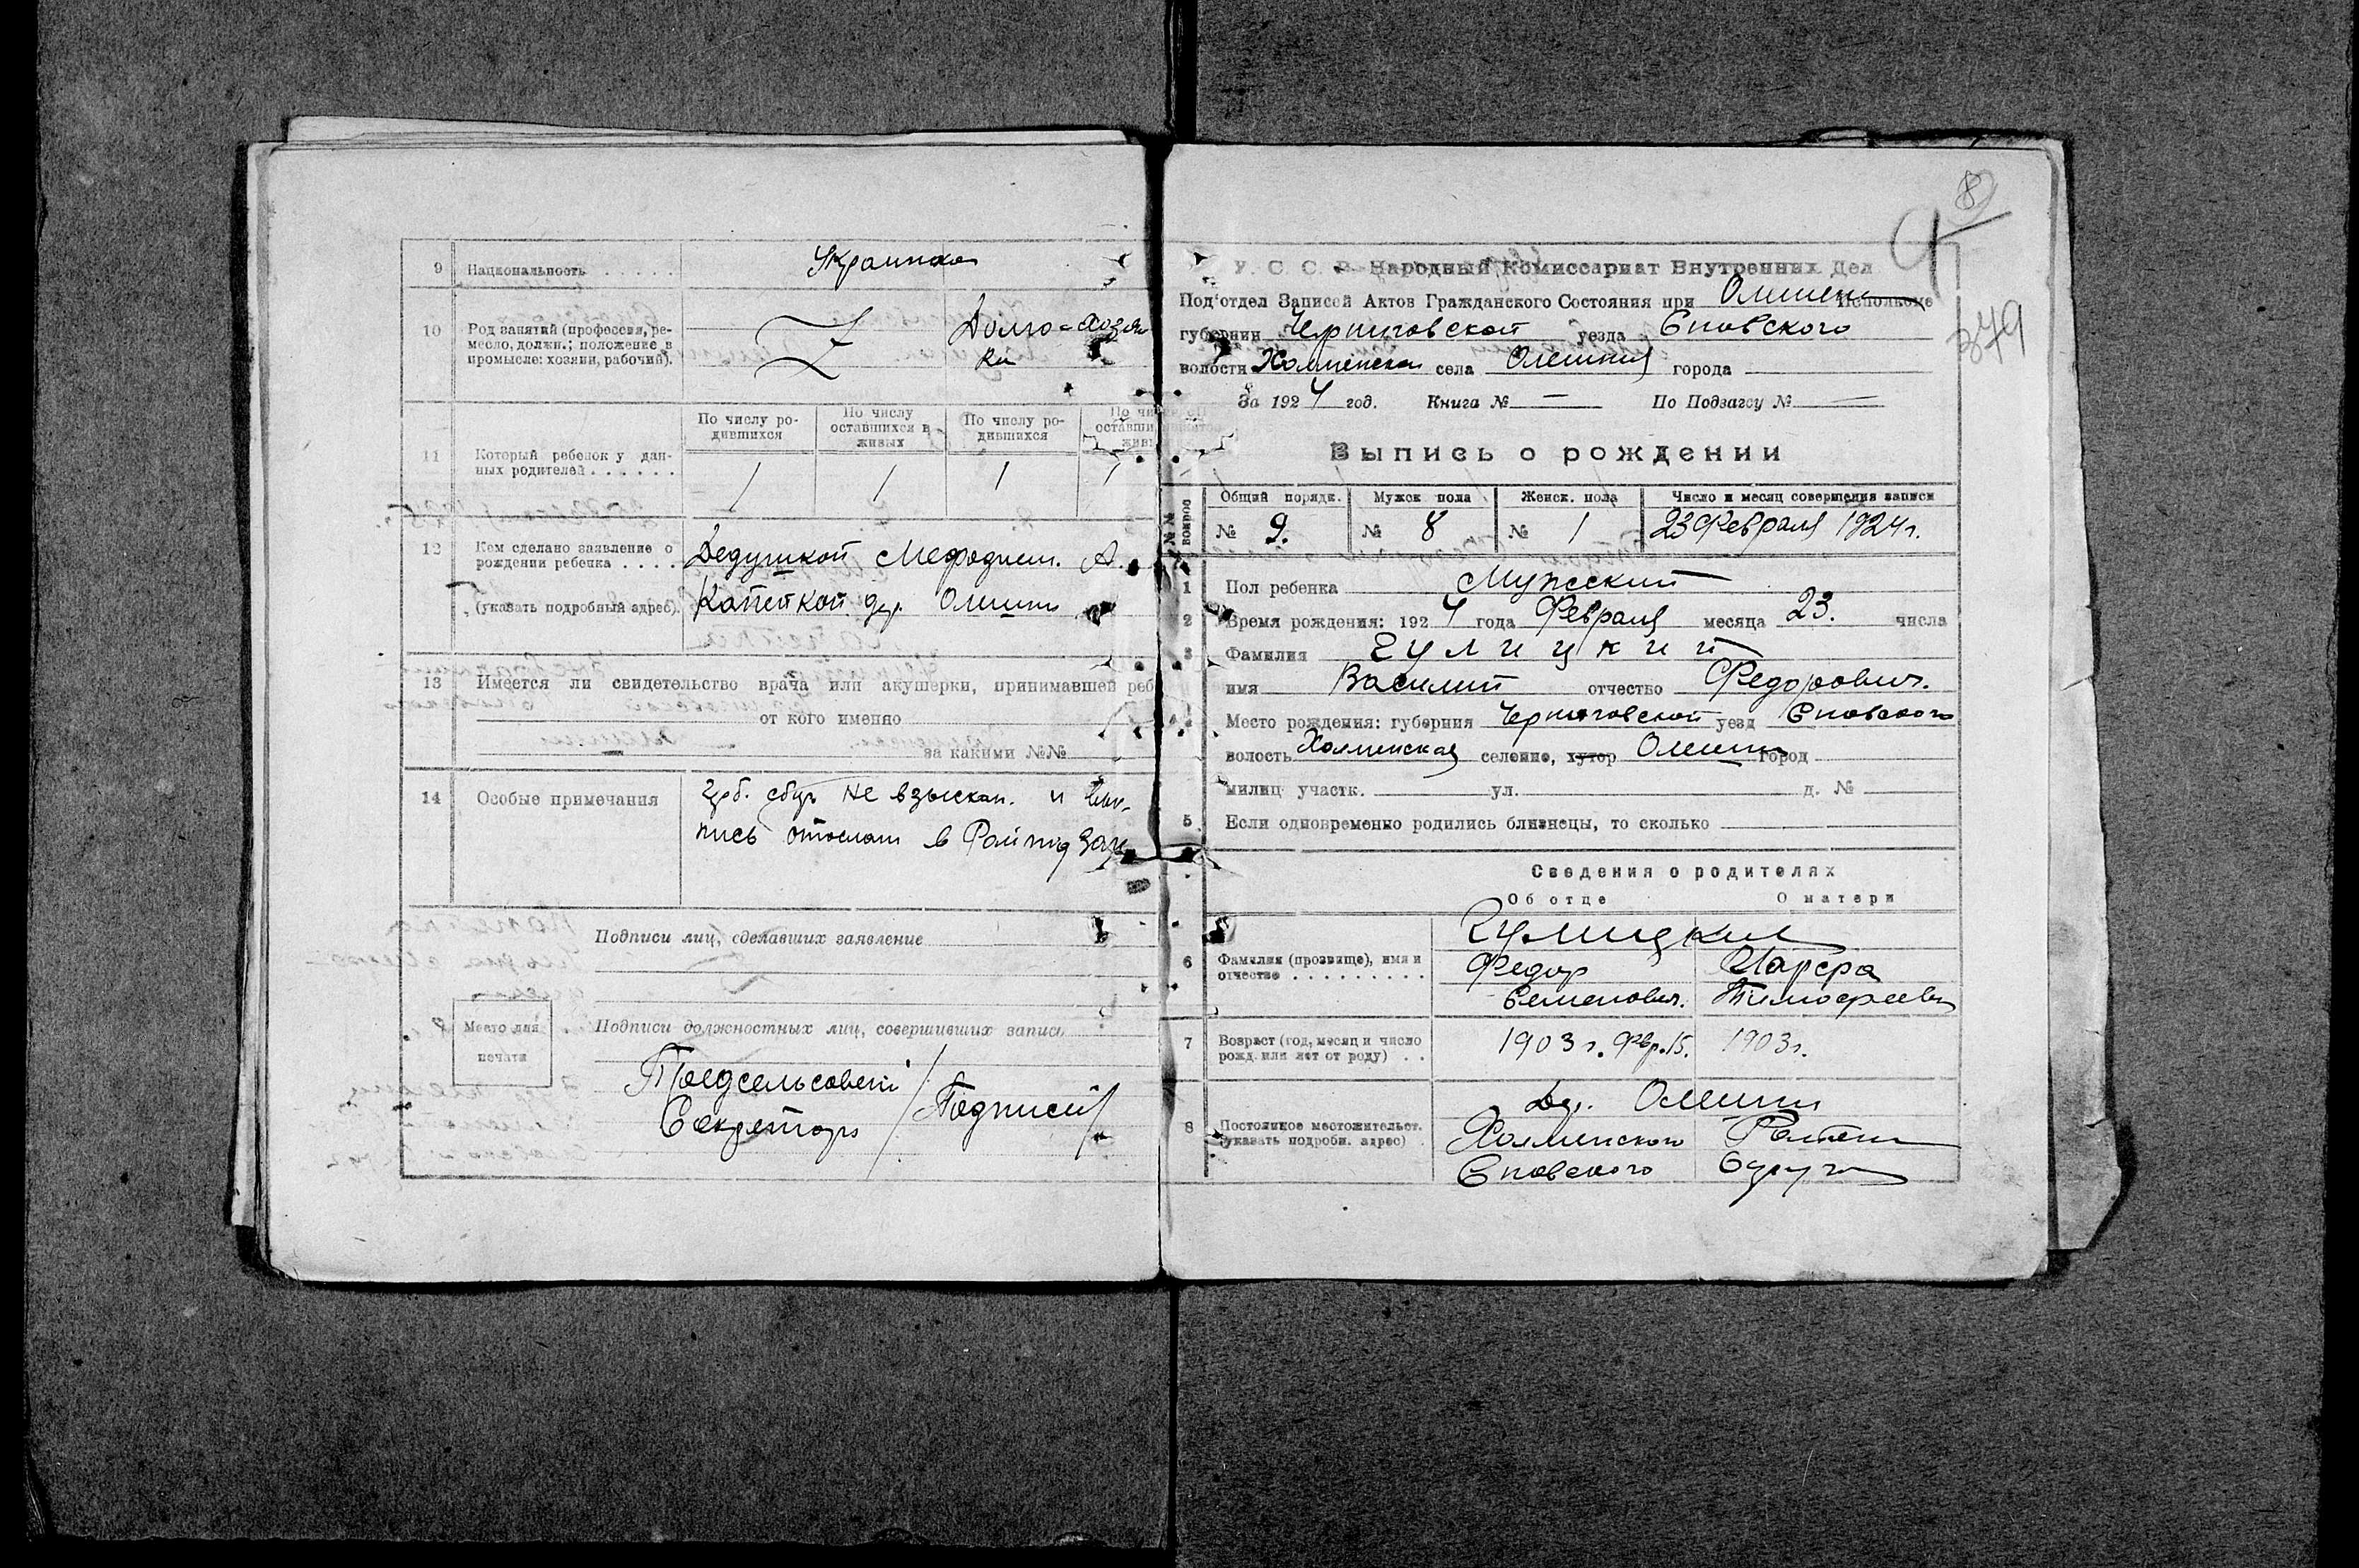 9 Национальность . . . . . Украинка
10 Род занятий (профессия, ре-
месло, должн.; положение в
промысле: хозяин, рабочий).
Домо-хозяй
ки
По числу ро-
дившихся
По числу
оставшихся в
живых
По числу ро-
дившихся
11 Который ребенок у дан-
ных родителей . . . . . .
1 1 1 1
12 Кем сделано заявление о
рождении ребенка . . . . Дедушкой Мефодием. А.
(указать подробный адрес). Капейкой дер. Олешни
13 Имеется ли свидетельство врача или акушерки, принимавшей реб
от кого именно
за какими №№
14 Особые примечания
сбор не взыскан. и
пись отослан в
Подписи лиц, сделавших заявление
Место для
печати
Подписи должностных лиц, совершивших запись
Предсельсовета
Секретарь /Подписи/
8
379
У. С. С. Р. Народный Комиссариат Внутренних Дел
Под'отдел Записей Актов Гражданского Состояния при Олешен Исполкоме
губернии Черниговской уезда Сновского
волости Холменской села Олешня города
За 1924 год. Книга № — По Подзагсу № —
Выпись о рождении
№№ вопросов
Общий порядк. Мужск пола Женск. пола Число и месяц совершения записи
№ 9. № 8 № 1 23 Февраля 1924 г.
1 Пол ребенка Мужеский
2 Время рождения: 1924 года Февраля месяца 23. числа
3 Фамилия Гулицкий
имя Василий отчество Федорович.
Место рождения: губерния Черниговской уезд Сновского
волость Холменская селение, хутор Олешни город
милиц участк. ул. д. №
5 Если одновременно родились близнецы, то сколько
Сведения о родителях
Об отце О матери
Гулицкие
6 Фамилия (прозвище), имя и
отчество . . . . . . . . . .
Федор Марфа
Семенович. Тимофеевн
7 Возраст (год, месяц и число
рожд. или лет от роду) . .
1903 г. Фвр. 15. 1903 г.
8 Постоянное местожительст.
(указать подробн. адрес) .
Дер. Олешни
Холменского Района
Сновского Округа